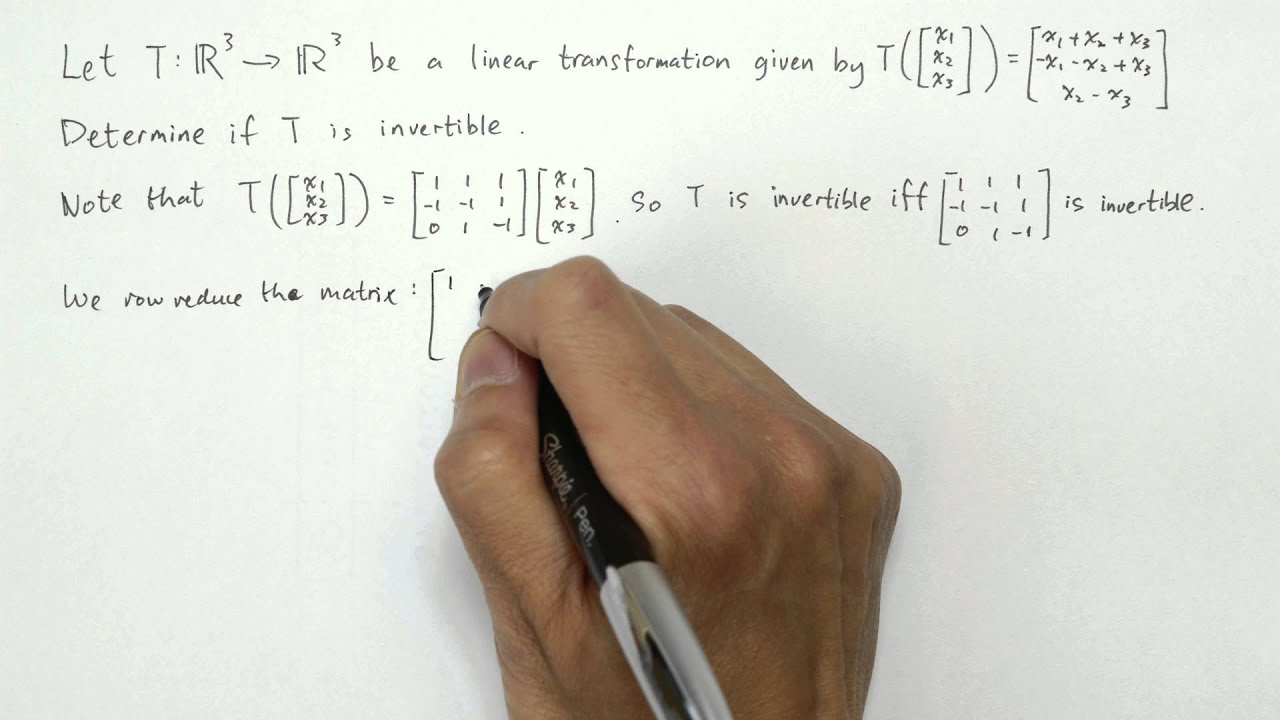 Let T : ℝ³ → ℝ³ be a linear transformation given by T([x₁ x₂ x₃]) = [x₁ + x₂ + x₃ -x₁ - x₂ + x₃ x₂ - x₃]
Determine if T is invertible.
Note that T([x₁ x₂ x₃]) = [1 1 1 -1 -1 1 0 1 -1][x₁ x₂ x₃]. So T is invertible iff [1 1 1 -1 -1 1 0 1 -1] is invertible.
We row reduce the matrix : [1
Sharpie / Pen.